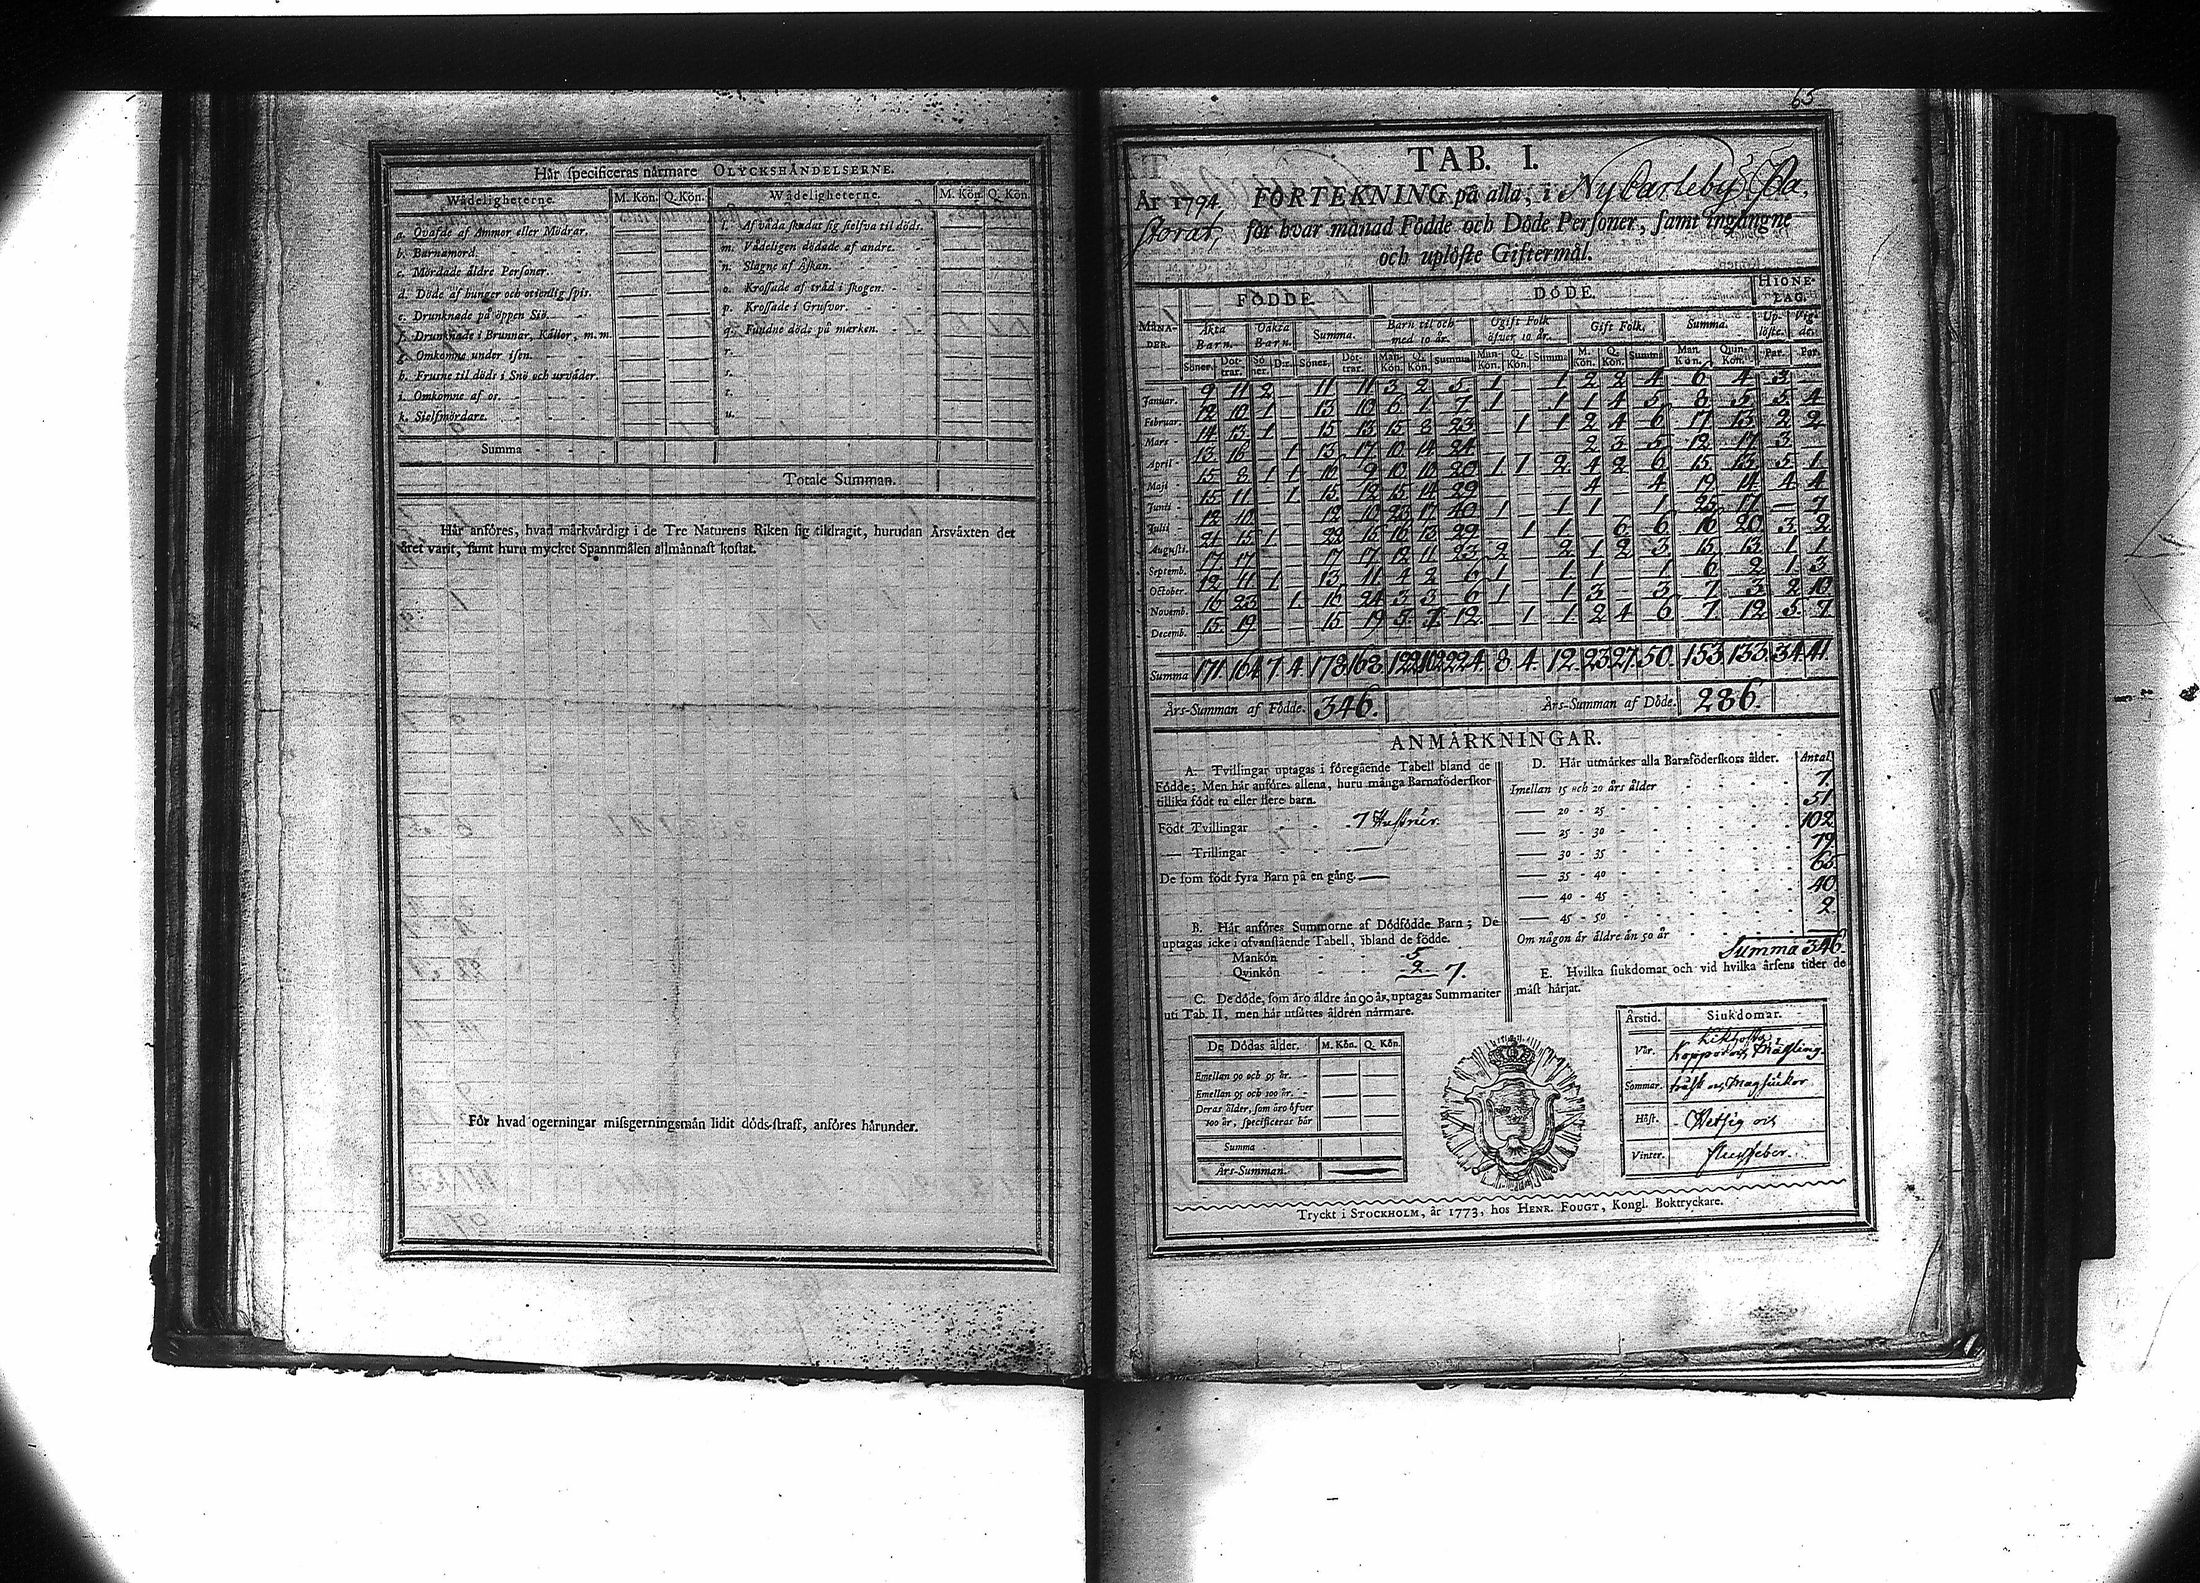 Hår ſpecificeras nårmare OLYCKSHÅNDELSERNE.
Wådeligheterne. M. Kön. Q. Kön. Wådeligheterne. M. Kön. Q. Kön.
a. Qvafde af Ammor eller Mödrar. — — l. Af våda ſkudat ſig ſielfva til döds. — —
b. Barnamord. — — m. Vådeligen dödade af andre. — —
c. Mördade åldre Perſoner. — — n. Slagne af Åſkan. — —
d. Döde af hunger och otienlig ſpis. — — o. Kroſſade af tråd i ſkogen. — —
e. Drunknade på öppen Siö. — — p. Kroſſade i Grufvor. — —
f. Drunknade i Brunnar, Kållor, m.m. — — q. Fundne döde på marken. — —
g. Omkomne under iſen. — — r. — —
h. Fruſne til döds i Snö och urvåder. — — s. — —
i. Omkomne af os. — — t. — —
k. Sielfmördare. — — u. — —
Summa
Totale Summan.
Hår anföres, hvad mårkvårdigt i de Tre Naturens Riken ſig tildragit, hurudan Årsvåxten det
året varit, ſamt huru mycket Spannmålen allmånnaſt koſtat.
För hvad ogerningar miſsgerningsmån lidit döds-ſtraff, anföres hårunder.
65
TAB. I.
År 1794 FÖRTEKNING på alla, i Ny Carleby Pa-
storat, för hvar månad Födde och Döde Perſoner, ſamt ingångne
och uplöſte Giftermål.
FÖDDE. DÖDE. HIONE-
LAG.
MÅNA-
DER. Åkta
Barn. Oåkta
Barn. Summa. Barn til och
med 10 år. Ogift Folk
öfver 10 år. Gift Folk. Summa. Up-
löſte. Vig-
de.
Söner. Döt-
trar. Sö-
ner. Dr. Söner. Döt-
trar. Man
Kön. Q.
Kön. Summa Man
Kön. Q.
Kön. Summa M.
Kön. Q.
Kön. Summa Man
Kön. Quin-
Kön. Par. Par.
Januar. 9 11 2 — 11 11 3 2 5 1 — 1 2 2 4 6 4 3 —
Februar. 12 10 1 — 13 10 6 1 7 1 — 1 1 4 5 8 5 5 4
Mars 14 13 1 — 15 13 15 8 23 — 1 1 2 4 6 17 13 2 2
April 13 16 — 1 13 17 10 14 24 — — — 2 3 5 12 17 3
Maji 15 8 1 1 16 9 10 10 20 1 1 2 4 2 6 15 13 5 1
Junii 15 11 — 1 15 12 15 14 29 — — — 4 — 4 19 14 4 4
Julii 12 10 — — 12 10 23 17 40 1 — 1 1 — 1 25 17 — 7
Auguſti. 21 15 1 — 22 15 16 13 29 — 1 1 — 6 6 16 20 3 2
Septemb. 17 17 — — 17 17 12 11 23 2 — 2 1 2 3 15 13 1 1
October. 12 11 1 — 13 11 4 2 6 1 — 1 1 — 1 6 2 1 3
Novemb. 16 23 — 1 16 24 3 3 6 1 — 1 3 — 3 7 3 2 10
Decemb. 15 19 — — 15 19 5 7 12 — 1 1 2 4 6 7 12 5 7
Summa 171. 164 7. 4. 178 168 122 102 224. 8 4. 12. 23 27 50. 153 133. 34 41.
Års-Summan af Födde. 346. Års-Summan af Döde. 286.
ANMÅRKNINGAR.
A. Tvillingar uptagas i föregående Tabell bland de
Födde; Men hår anföres allena, huru många Barnaföderſkor
tillika födt tu eller flere barn.
Födt Tvillingar - - - 7 Hustrur.
— Trillingar - - - —
De ſom födt fyra Barn på en gång. —
B. Hår anföres Summorne af Dödfödde Barn; De
uptagas icke i ofvanſtående Tabell, ibland de födde.
Mankön - - 5
Qvinkön - - 2 7.
C. De döde, ſom åro åldre ån 90 år, uptagas Summariter
uti Tab. II, men hår utſåttes åldren nårmare.
De Dödas ålder. M. Kön. Q. Kön.
Emellan 90 och 95 år. — —
Emellan 95 och 100 år. — —
Deras ålder, ſom åro öfver
100 år, ſpecificeras hår — —
Summa
Års-Summan. —
D. Hår utmårkes alla Barnföderſkors ålder. Antal.
Imellan 15 och 20 års ålder 7.
— 20 - 25 51
— 25 - 30 102
— 30 - 35 79
— 35 - 40 65
— 40 - 45 40
— 45 - 50 2
Om någon år åldre ån 50 år —
Summa 346
E. Hvilka ſiukdomar och vid hvilka årſens tider de
måſt hårjat.
Årstid. Siukdomar.
Vår. Kikhosta, koppor och Mäßling.
Sommar. och Magsiukor
Höſt. Hetsig och
Vinter. Flussfeber.
Tryckt i STOCKHOLM, år 1773, hos HENR. FOUGT, Kongl. Boktryckare.